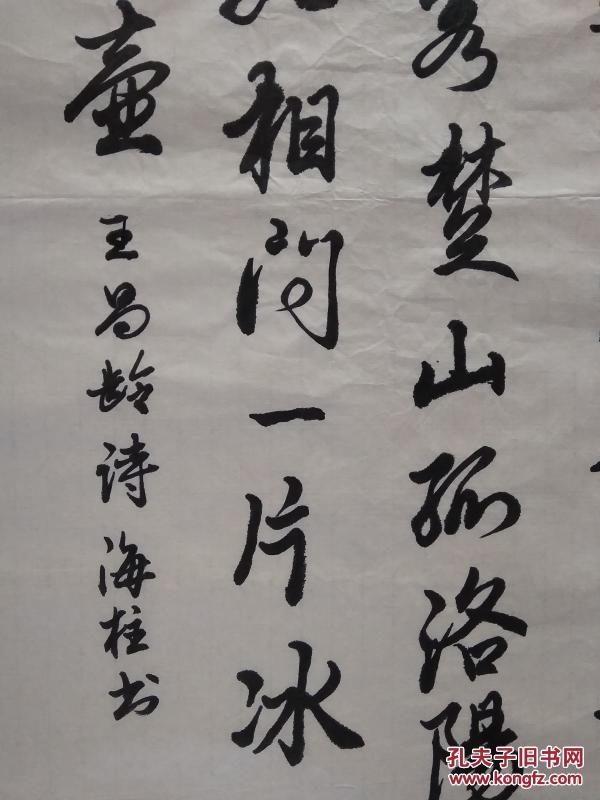 客楚山孤洛陽
相问一片冰
壶
王昌龄诗海柱书
孔夫子旧书网
www.kongfz.com